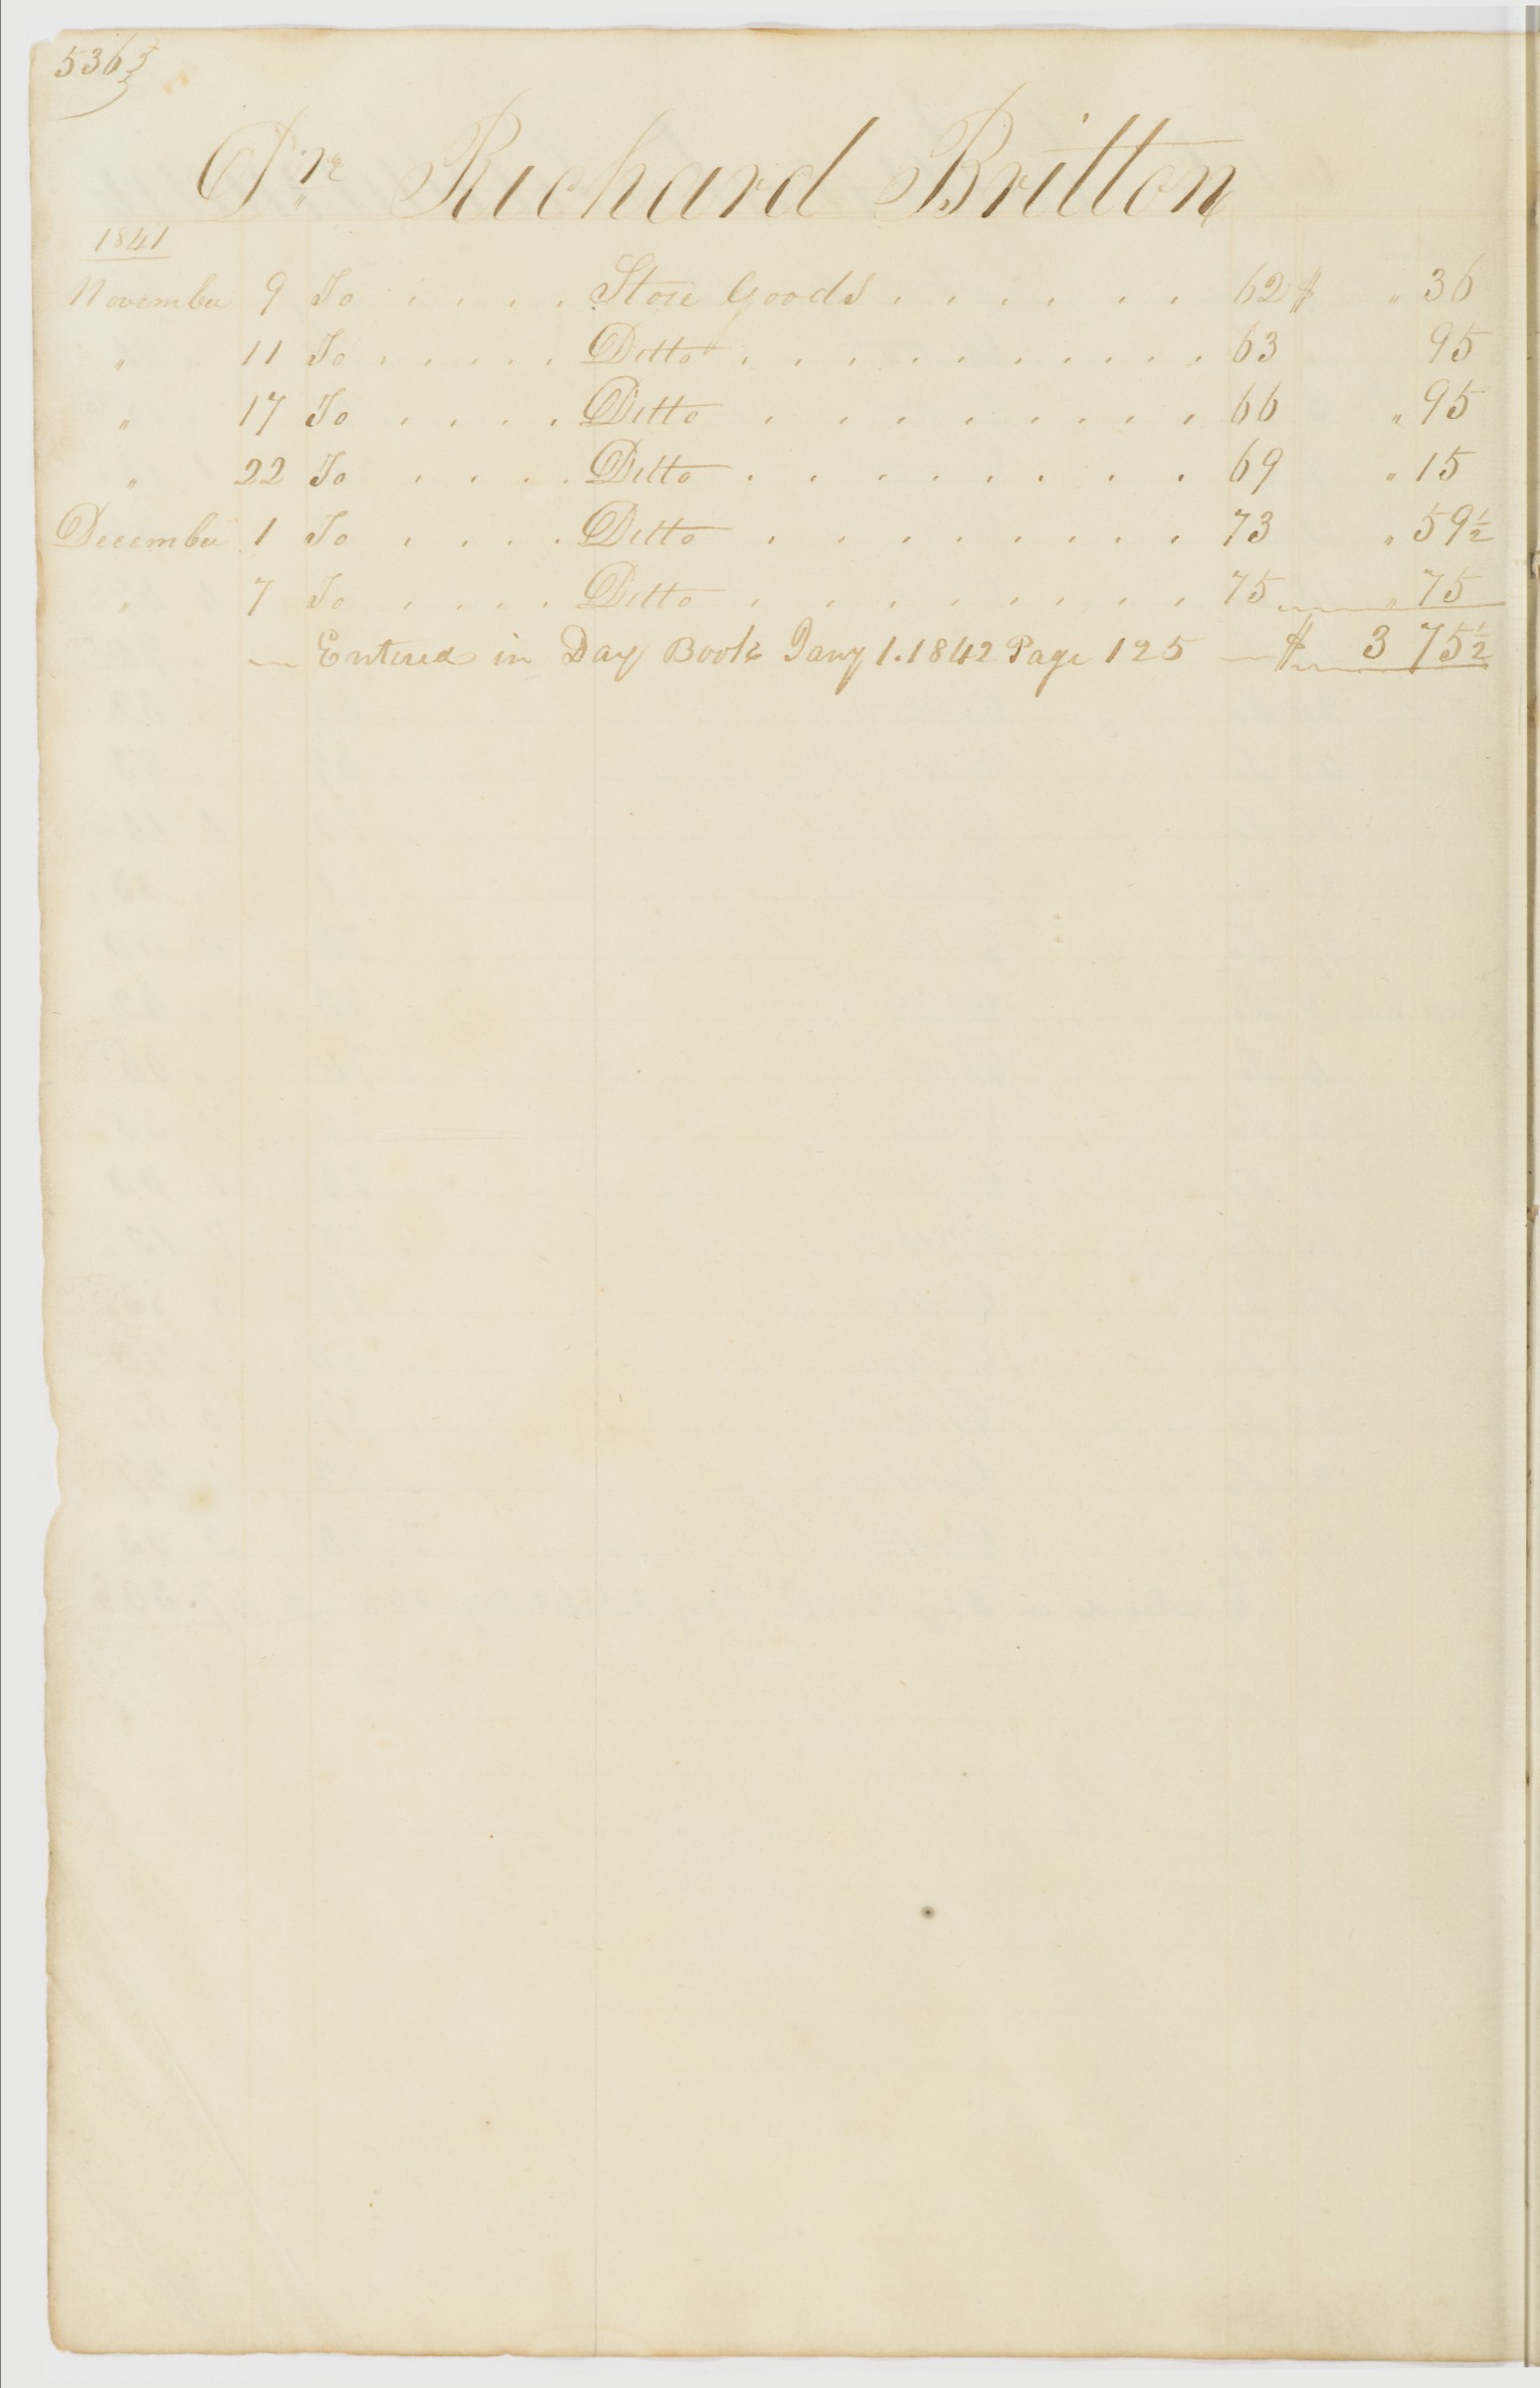 536
Dr Richard Britton
1841
November 9 To . . . . Store Goods . . . . . . 62 $ " 36
" 11 To . . . . . Ditto . . . . . . . . . . 63 95
" 17 To . . . . Ditto . . . . . . . . . 66 " 95
" 22 To . . . . Ditto . . . . . . . . . 69 " 15
December 1 To . . . . Ditto . . . . . . . . . 73 " 59½
" 7 To . . . . Ditto . . . . . . . . . 75 " 75
— Entered in Day Book Jany 1. 1842 Page 125 — $ 3 75½